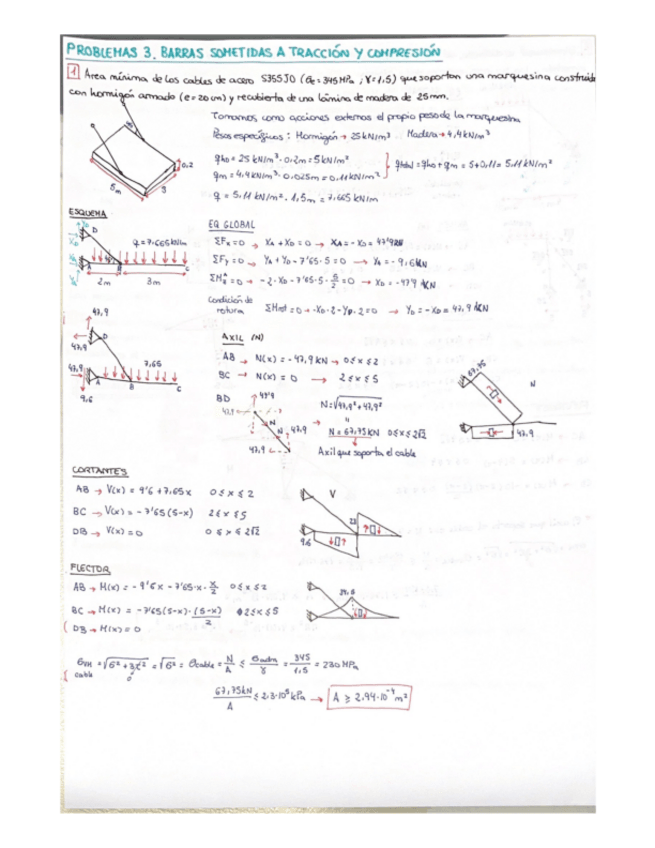 PROBLEMAS 3. BARRAS SOMETIDAS A TRACCIÓN Y COMPRESIÓN
1 Área mínima de los cables de acero S355J0 (σe = 345 MPa ; γ = 1,5) que soportan una marquesina construida
con hormigón armado (e = 20 cm) y recubierta de una lámina de madera de 25mm.
Tomamos como acciones externas el propio peso de la marquesina
Pesos específicos: Hormigón → 25 kN/m³ Madera → 4,4 kN/m³
qho = 25 kN/m³ · 0,2m = 5 kN/m²
qm = 4,4 kN/m³ · 0,025m = 0,11 kN/m²
qtotal = qho + qm = 5 + 0,11 = 5,11 kN/m²
q = 5,11 kN/m² · 1,5m = 7,665 kN/m
0,2
5m
3
ESQUEMA
XD
D
q = 7,665 kN/m
A
B
C
2m
3m
EQ GLOBAL
ΣFx = 0 → XA + XD = 0 → XA = - XD = 47'9 kN
ΣFy = 0 → YA + YD - 7'65 · 5 = 0 → YA = - 9,6 kN
ΣMA = 0 → - 2 · XD - 7'65 · 5 · 5/2 = 0 → XD = - 47'9 kN
Condición de rotura ΣM = 0 → - XD · 2 - YD · 2 = 0 → YD = - XD = 47,9 kN
47,9
47,9
D
47,9
7,65
A
B
C
9,6
AXIL (N)
AB → N(x) = - 47,9 kN → 0 ≤ x ≤ 2
BC → N(x) = 0 → 2 ≤ x ≤ 5
BD
47'9
47,9
N
N
47,9
47,9
N = √47,9² + 47,9²
"
N = 67,75 kN 0 ≤ x ≤ 2√2
Axil que soporta el cable
67,75
N
47,9
CORTANTES
AB → V(x) = 9'6 + 7,65x 0 ≤ x ≤ 2
BC → V(x) = - 7'65 (5-x) 2 ≤ x ≤ 5
DB → V(x) = 0 0 ≤ x ≤ 2√2
V
23
9,6
FLECTOR
AB → M(x) = - 9'6x - 7'65 · x · x/2 0 ≤ x ≤ 2
BC → M(x) = - 7'65 (5-x) · (5-x)/2 2 ≤ x ≤ 5
DB → M(x) = 0
σVM = √σ² + 3τ² = √σ² = σcable = N/A ≤ σadm/γ = 345/1,5 = 230 MPa
cable
0
67,75 kN/A ≤ 2,3·10⁵ kPa → A ≥ 2,94·10⁻⁴ m²